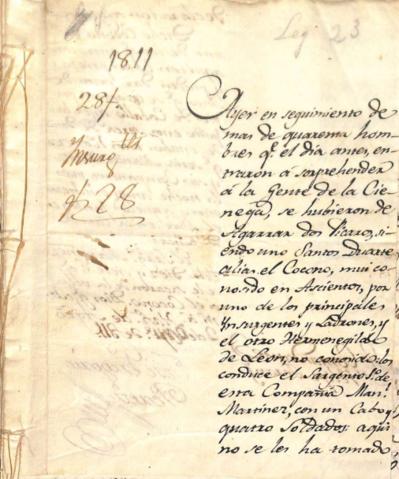 Leg 23
1811
28/.
Insurg.tes
f 28
Ayer en seguimiento de
mas de quarenta hom-
bres q.e el dia antes, en-
traron a sorprehender
á la Gente de la Cie-
nega, se hubieron de
Agarrar dos Picaros, si-
endo uno Santos Duarte
alias el Cocono, mui co-
nosido en Ascientos, por
uno de los principales
Ynsurgentes y Ladrones, y
el otro Hermenegildo
de Leon, no conosido: los
conduce el Sargento 1.o de
esta Compañia Man.l
Martinez, con un Cabo y
quatro Soldados: aqui
no se les ha tomado